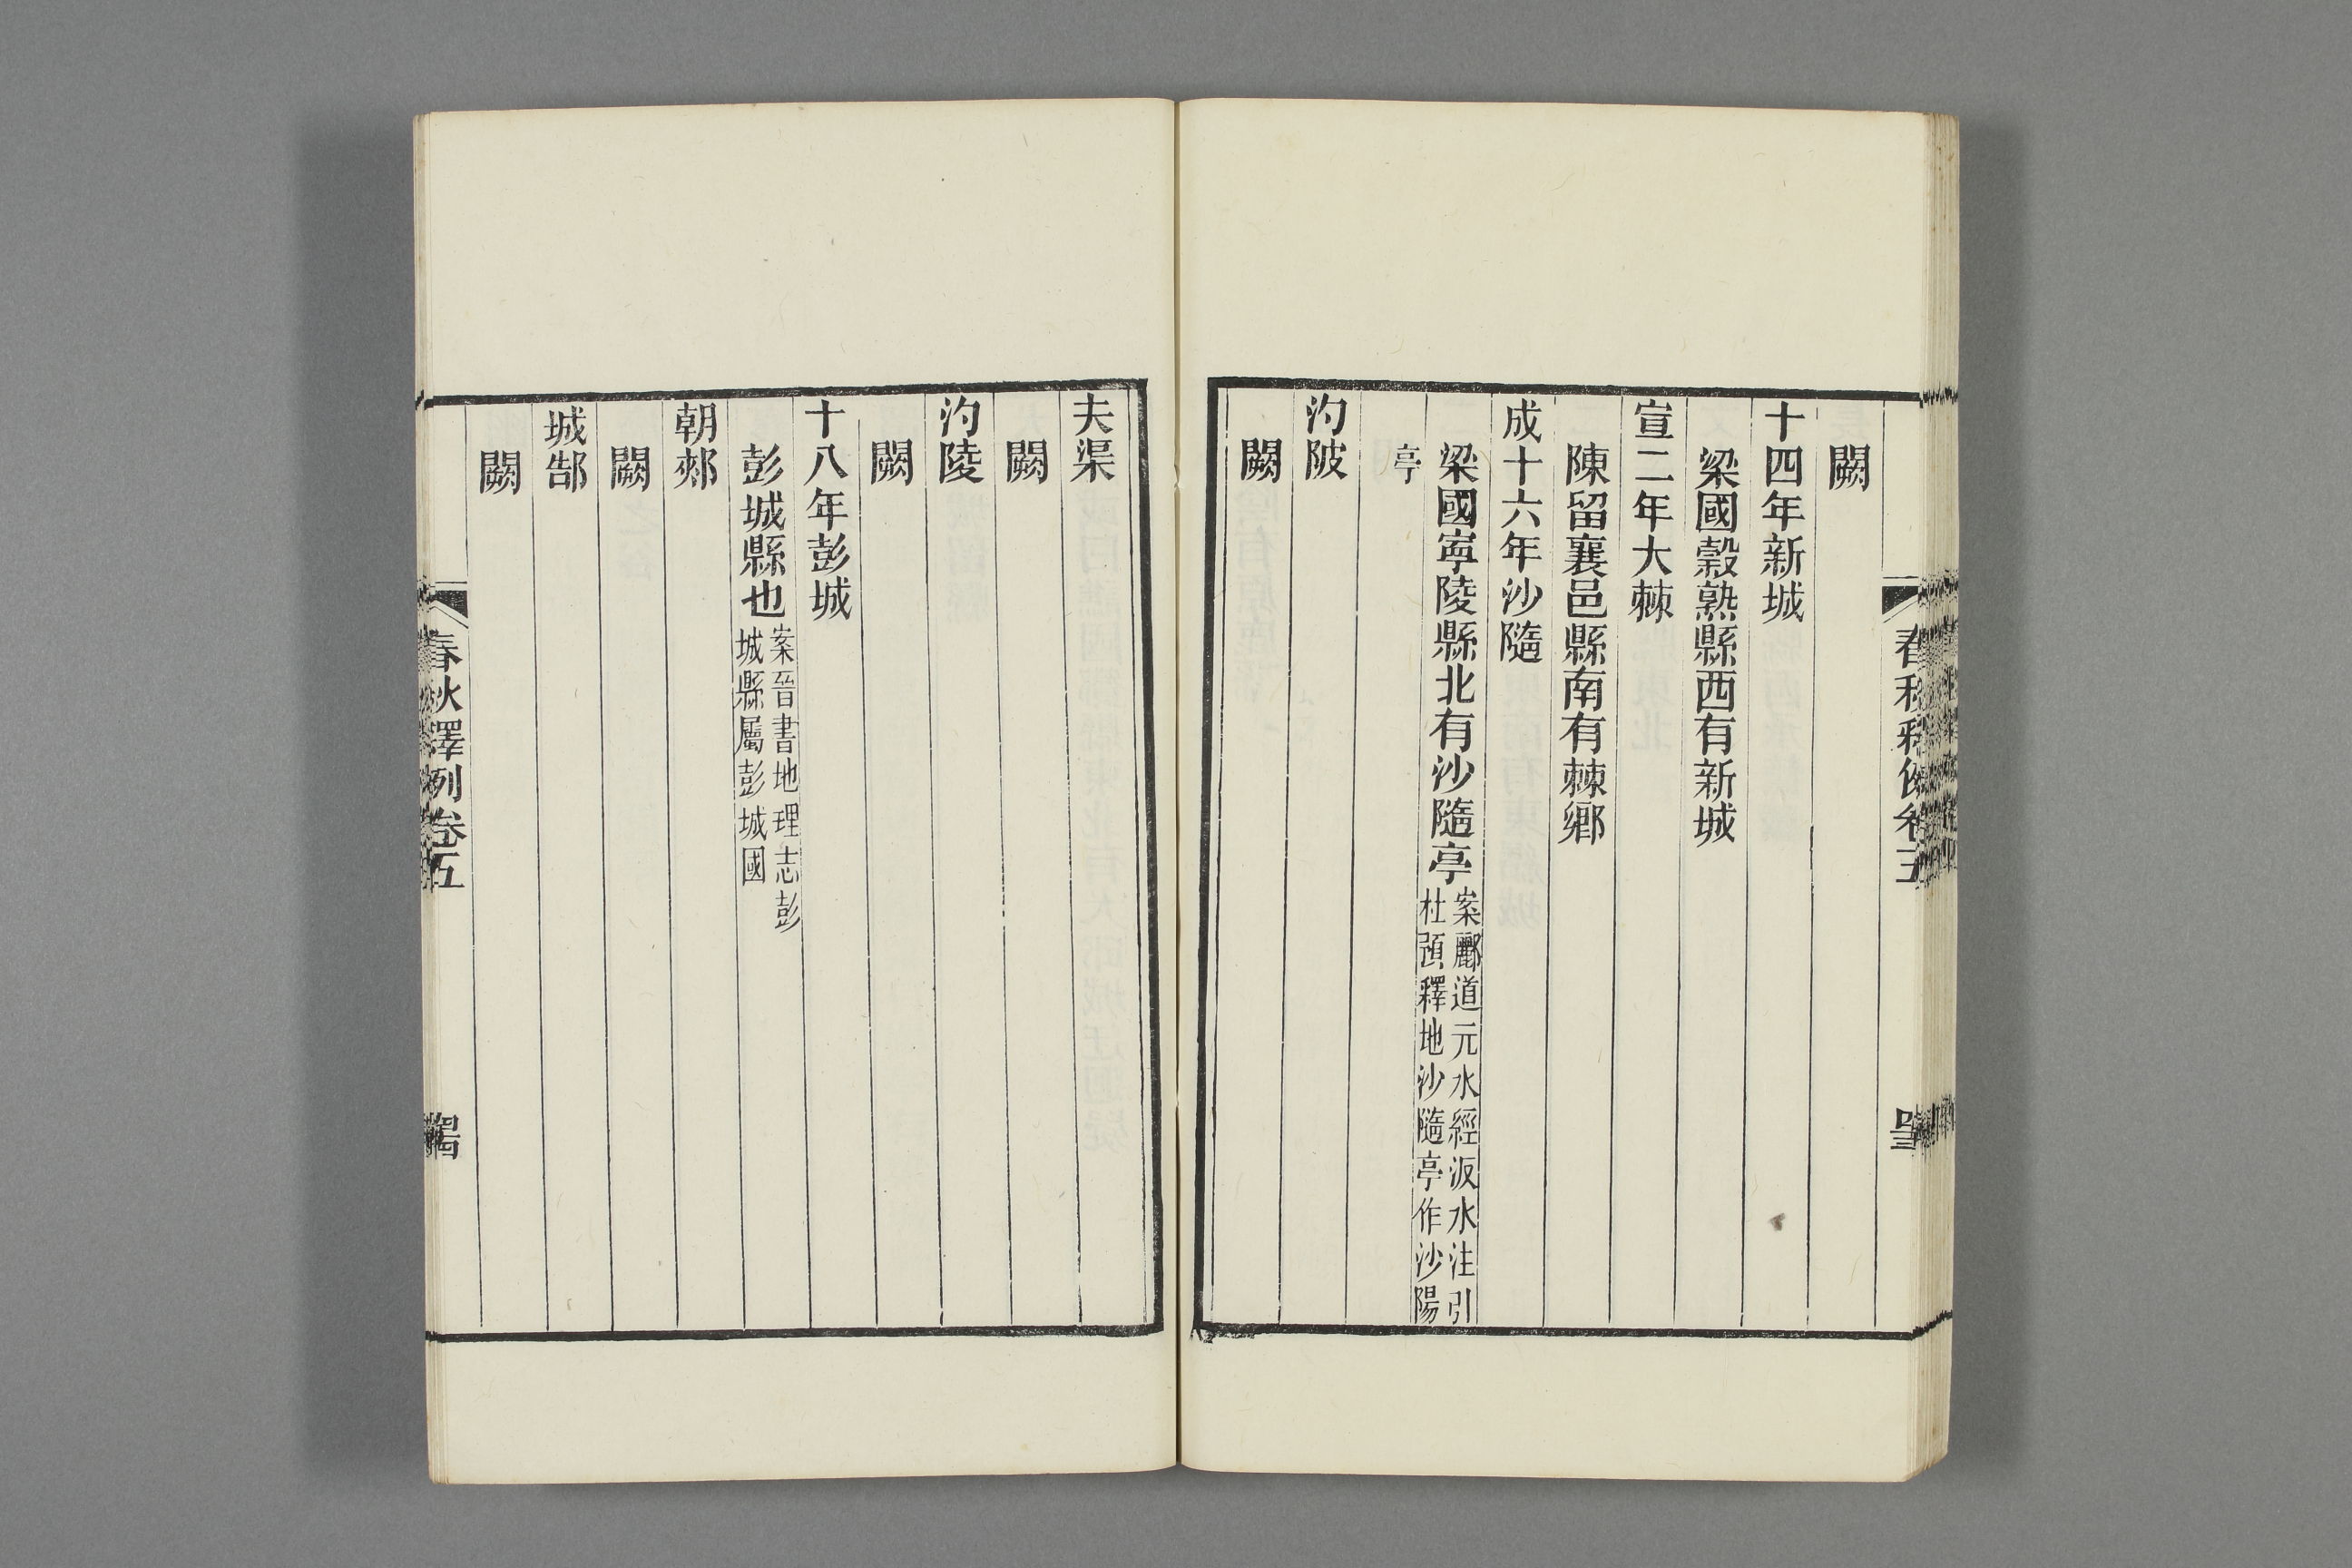 闕
十四年新城
梁國穀熟縣西有新城
宣二年大棘
陳留襄邑縣南有棘鄉
成十六年沙隨
梁國寧陵縣北有沙隨亭案酈道元水經汳水注引
杜預釋地沙隨亭作沙陽
亭
汋陂
闕
夫渠
闕
汋陵
闕
十八年彭城
彭城縣也案晉書地理志彭
城縣屬彭城國
朝郟
闕
城郜
闕
春秋釋例卷五